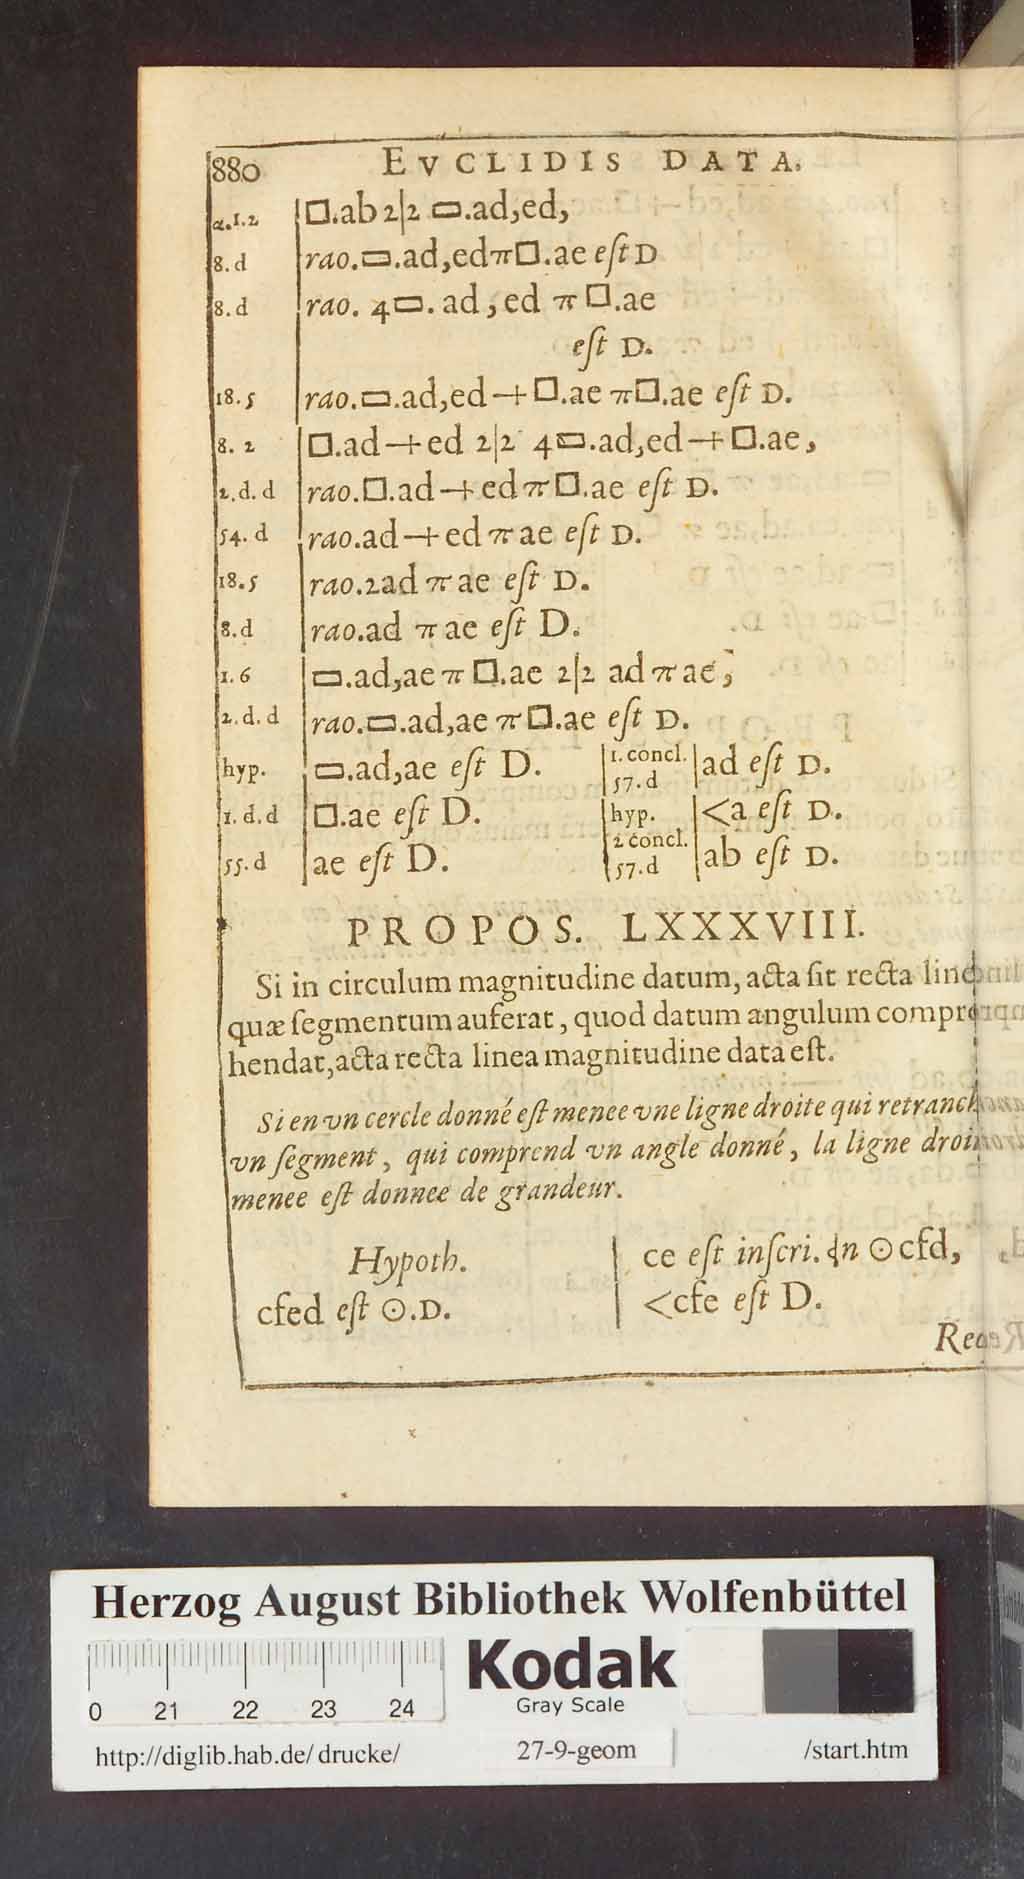 880 EVCLIDIS DATA.
α.1.2 □.ab 2|2 ▭.ad,ed,
8.d rao.▭.ad,edπ□.ae eſt D
8.d rao. 4▭. ad, ed π □.ae
eſt D.
18.5 rao.▭.ad,ed+□.ae π□.ae eſt D.
8. 2 □.ad+ed 2|2 4▭.ad,ed+□.ae,
2.d.d rao.□.ad+edπ□.ae eſt D.
54. d rao.ad+edπae eſt D.
18.5 rao.2ad π ae eſt D.
8.d rao.ad π ae eſt D.
1.6 ▭.ad,ae π □.ae 2|2 ad π ae,
2.d.d rao.▭.ad,ae π□.ae eſt D.
hyp. ▭.ad,ae eſt D. 1.concl. 57.d ad eſt D.
1.d.d □.ae eſt D. hyp. <a eſt D.
55.d ae eſt D. 2 concl. 57.d ab eſt D.
PROPOS. LXXXVIII.
Si in circulum magnitudine datum, acta ſit recta
quæ ſegmentum auferat, quod datum angulum
hendat, acta recta linea magnitudine data eſt.
Si en vn cercle donné eſt menee vne ligne droite qui
vn ſegment, qui comprend vn angle donné, la ligne
menee eſt donnee de grandeur.
Hypoth.
cfed eſt ⊙.D.
ce eſt inſcri. in ⊙cfd,
<cfe eſt D.
Herzog August Bibliothek Wolfenbüttel
0 21 22 23 24
Kodak
Gray Scale
http://diglib.hab.de/drucke/ 27-9-geom /start.htm